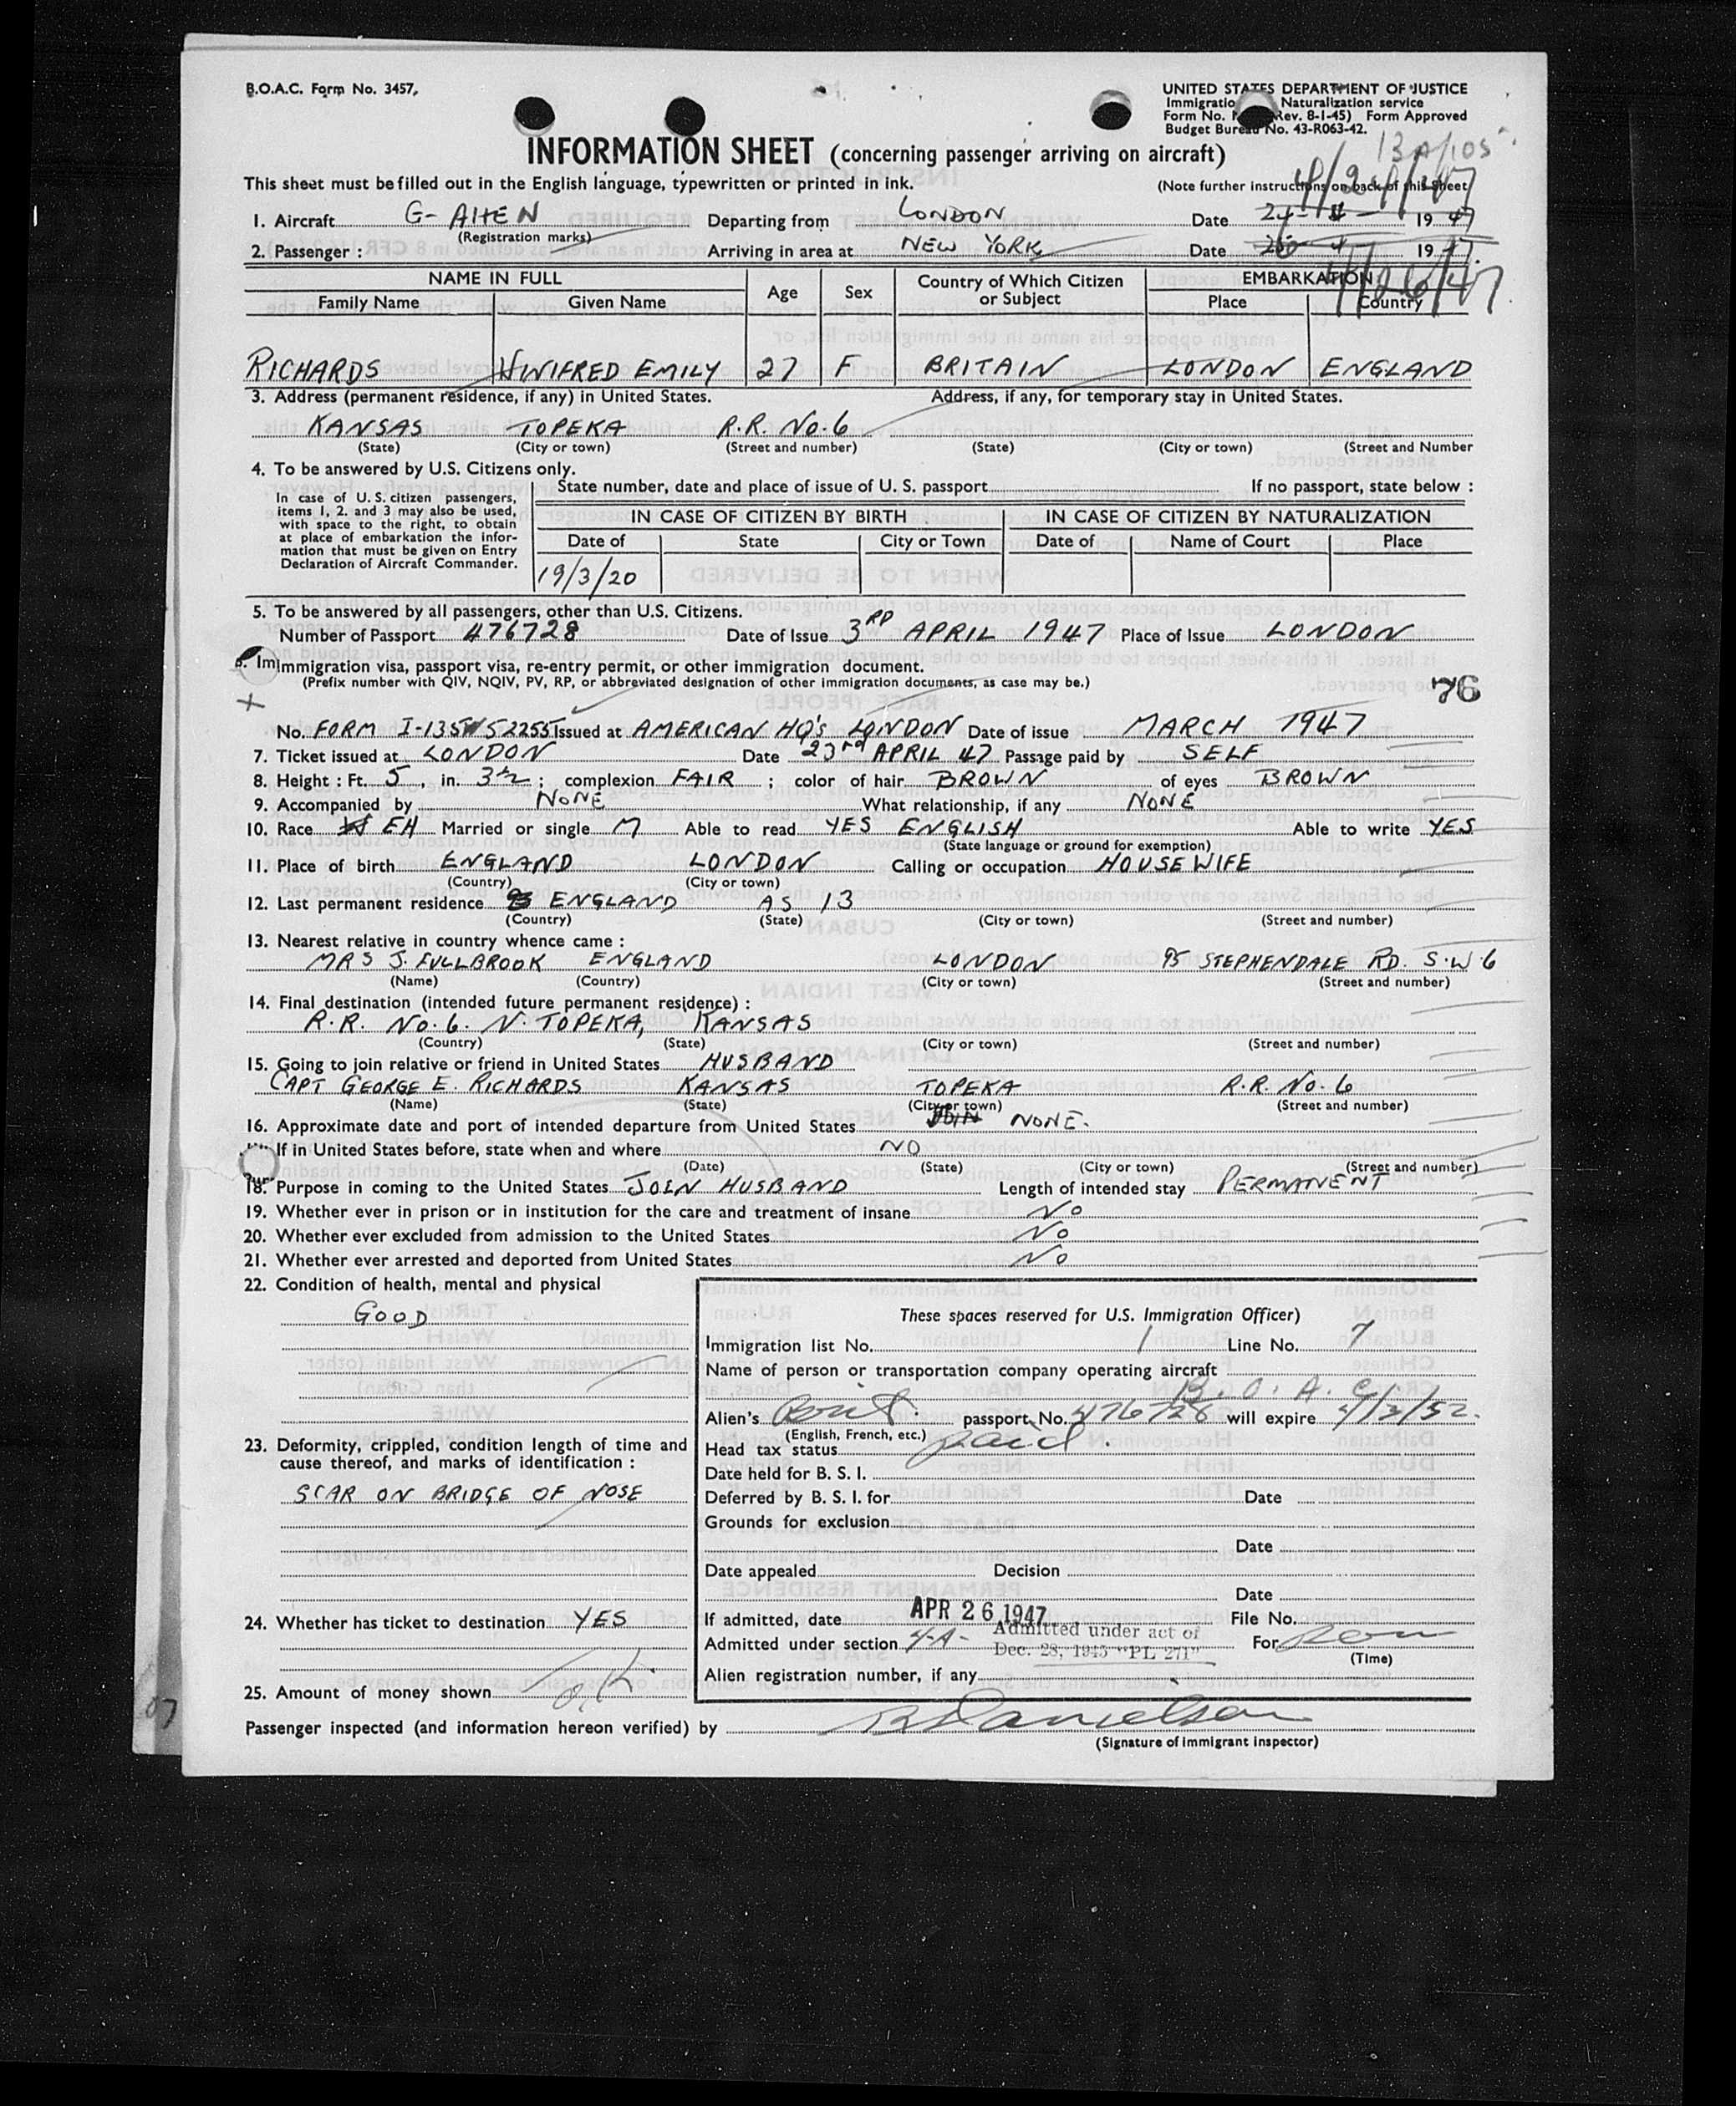 B.O.A.C. Form No. 3457,
UNITED STATES DEPARTMENT OF JUSTICE
Immigratio Naturalization service
Form No. Rev. 8-1-45) Form Approved
Budget Bureau No. 43-R063-42.
13A/105
INFORMATION SHEET (concerning passenger arriving on aircraft)
This sheet must be filled out in the English language, typewritten or printed in ink. (Note further instructions on back of this sheet
1. Aircraft G-AHEN Departing from LONDON Date 24-4- 1947
(Registration marks)
2. Passenger : Arriving in area at NEW YORK Date 1947.
4/26/47
NAME IN FULL Age Sex Country of Which Citizen or Subject EMBARKATION
Family Name Given Name Place Country
RICHARDS WINIFRED EMILY 27 F BRITAIN LONDON ENGLAND
3. Address (permanent residence, if any) in United States. Address, if any, for temporary stay in United States.
KANSAS TOPEKA R.R. No. 6
(State) (City or town) (Street and number) (State) (City or town) (Street and Number
4. To be answered by U.S. Citizens only.
In case of U. S. citizen passengers,
items 1, 2. and 3 may also be used,
with space to the right, to obtain
at place of embarkation the infor-
mation that must be given on Entry
Declaration of Aircraft Commander.
State number, date and place of issue of U. S. passport If no passport, state below :
IN CASE OF CITIZEN BY BIRTH IN CASE OF CITIZEN BY NATURALIZATION
Date of State City or Town Date of Name of Court Place
19/3/20
5. To be answered by all passengers, other than U.S. Citizens.
Number of Passport 476728 Date of Issue 3RD APRIL 1947 Place of Issue LONDON
6. Im Immigration visa, passport visa, re-entry permit, or other immigration document.
(Prefix number with QIV, NQIV, PV, RP, or abbreviated designation of other immigration documents, as case may be.)
76
No. FORM I-135 52255 Issued at AMERICAN HQ's LONDON Date of issue MARCH 1947
7. Ticket issued at LONDON Date 23rd APRIL 47 Passage paid by SELF
8. Height : Ft. 5, in. 3½ ; complexion FAIR ; color of hair BROWN of eyes BROWN
9. Accompanied by NONE What relationship, if any NONE
10. Race EH Married or single M Able to read YES ENGLISH Able to write YES
(State language or ground for exemption)
11. Place of birth ENGLAND LONDON Calling or occupation HOUSEWIFE
(Country) (City or town)
12. Last permanent residence ENGLAND AS 13
(Country) (State) (City or town) (Street and number)
13. Nearest relative in country whence came :
MRS J. FULLBROOK ENGLAND LONDON 95 STEPHENDALE RD. S.W.6
(Name) (Country) (City or town) (Street and number)
14. Final destination (intended future permanent residence) :
R.R. No. 6. N. TOPEKA, KANSAS
(Country) (State) (City or town) (Street and number)
15. Going to join relative or friend in United States HUSBAND
CAPT GEORGE E. RICHARDS KANSAS TOPEKA R.R. No. 6
(Name) (State) (City or town) (Street and number)
16. Approximate date and port of intended departure from United States NONE.
If in United States before, state when and where NO
(Date) (State) (City or town) (Street and number)
18. Purpose in coming to the United States JOIN HUSBAND Length of intended stay PERMANENT
19. Whether ever in prison or in institution for the care and treatment of insane No
20. Whether ever excluded from admission to the United States No
21. Whether ever arrested and deported from United States No
22. Condition of health, mental and physical
GOOD
These spaces reserved for U.S. Immigration Officer)
Immigration list No. 1 Line No. 7
Name of person or transportation company operating aircraft
B. O. A. C.
Alien's Brit. passport No. 476728 will expire 4/3/52.
(English, French, etc.)
Head tax status paid.
23. Deformity, crippled, condition length of time and
cause thereof, and marks of identification :
SCAR ON BRIDGE OF NOSE
Date held for B. S. I.
Deferred by B. S. I. for Date
Grounds for exclusion
Date
Date appealed Decision
Date
24. Whether has ticket to destination YES
If admitted, date APR 26 1947 File No.
Admitted under section 4-A- Admitted under act of
Dec. 28, 1945 "PL 271" For
(Time)
Alien registration number, if any
25. Amount of money shown o.K.
Passenger inspected (and information hereon verified) by
(Signature of immigrant inspector)